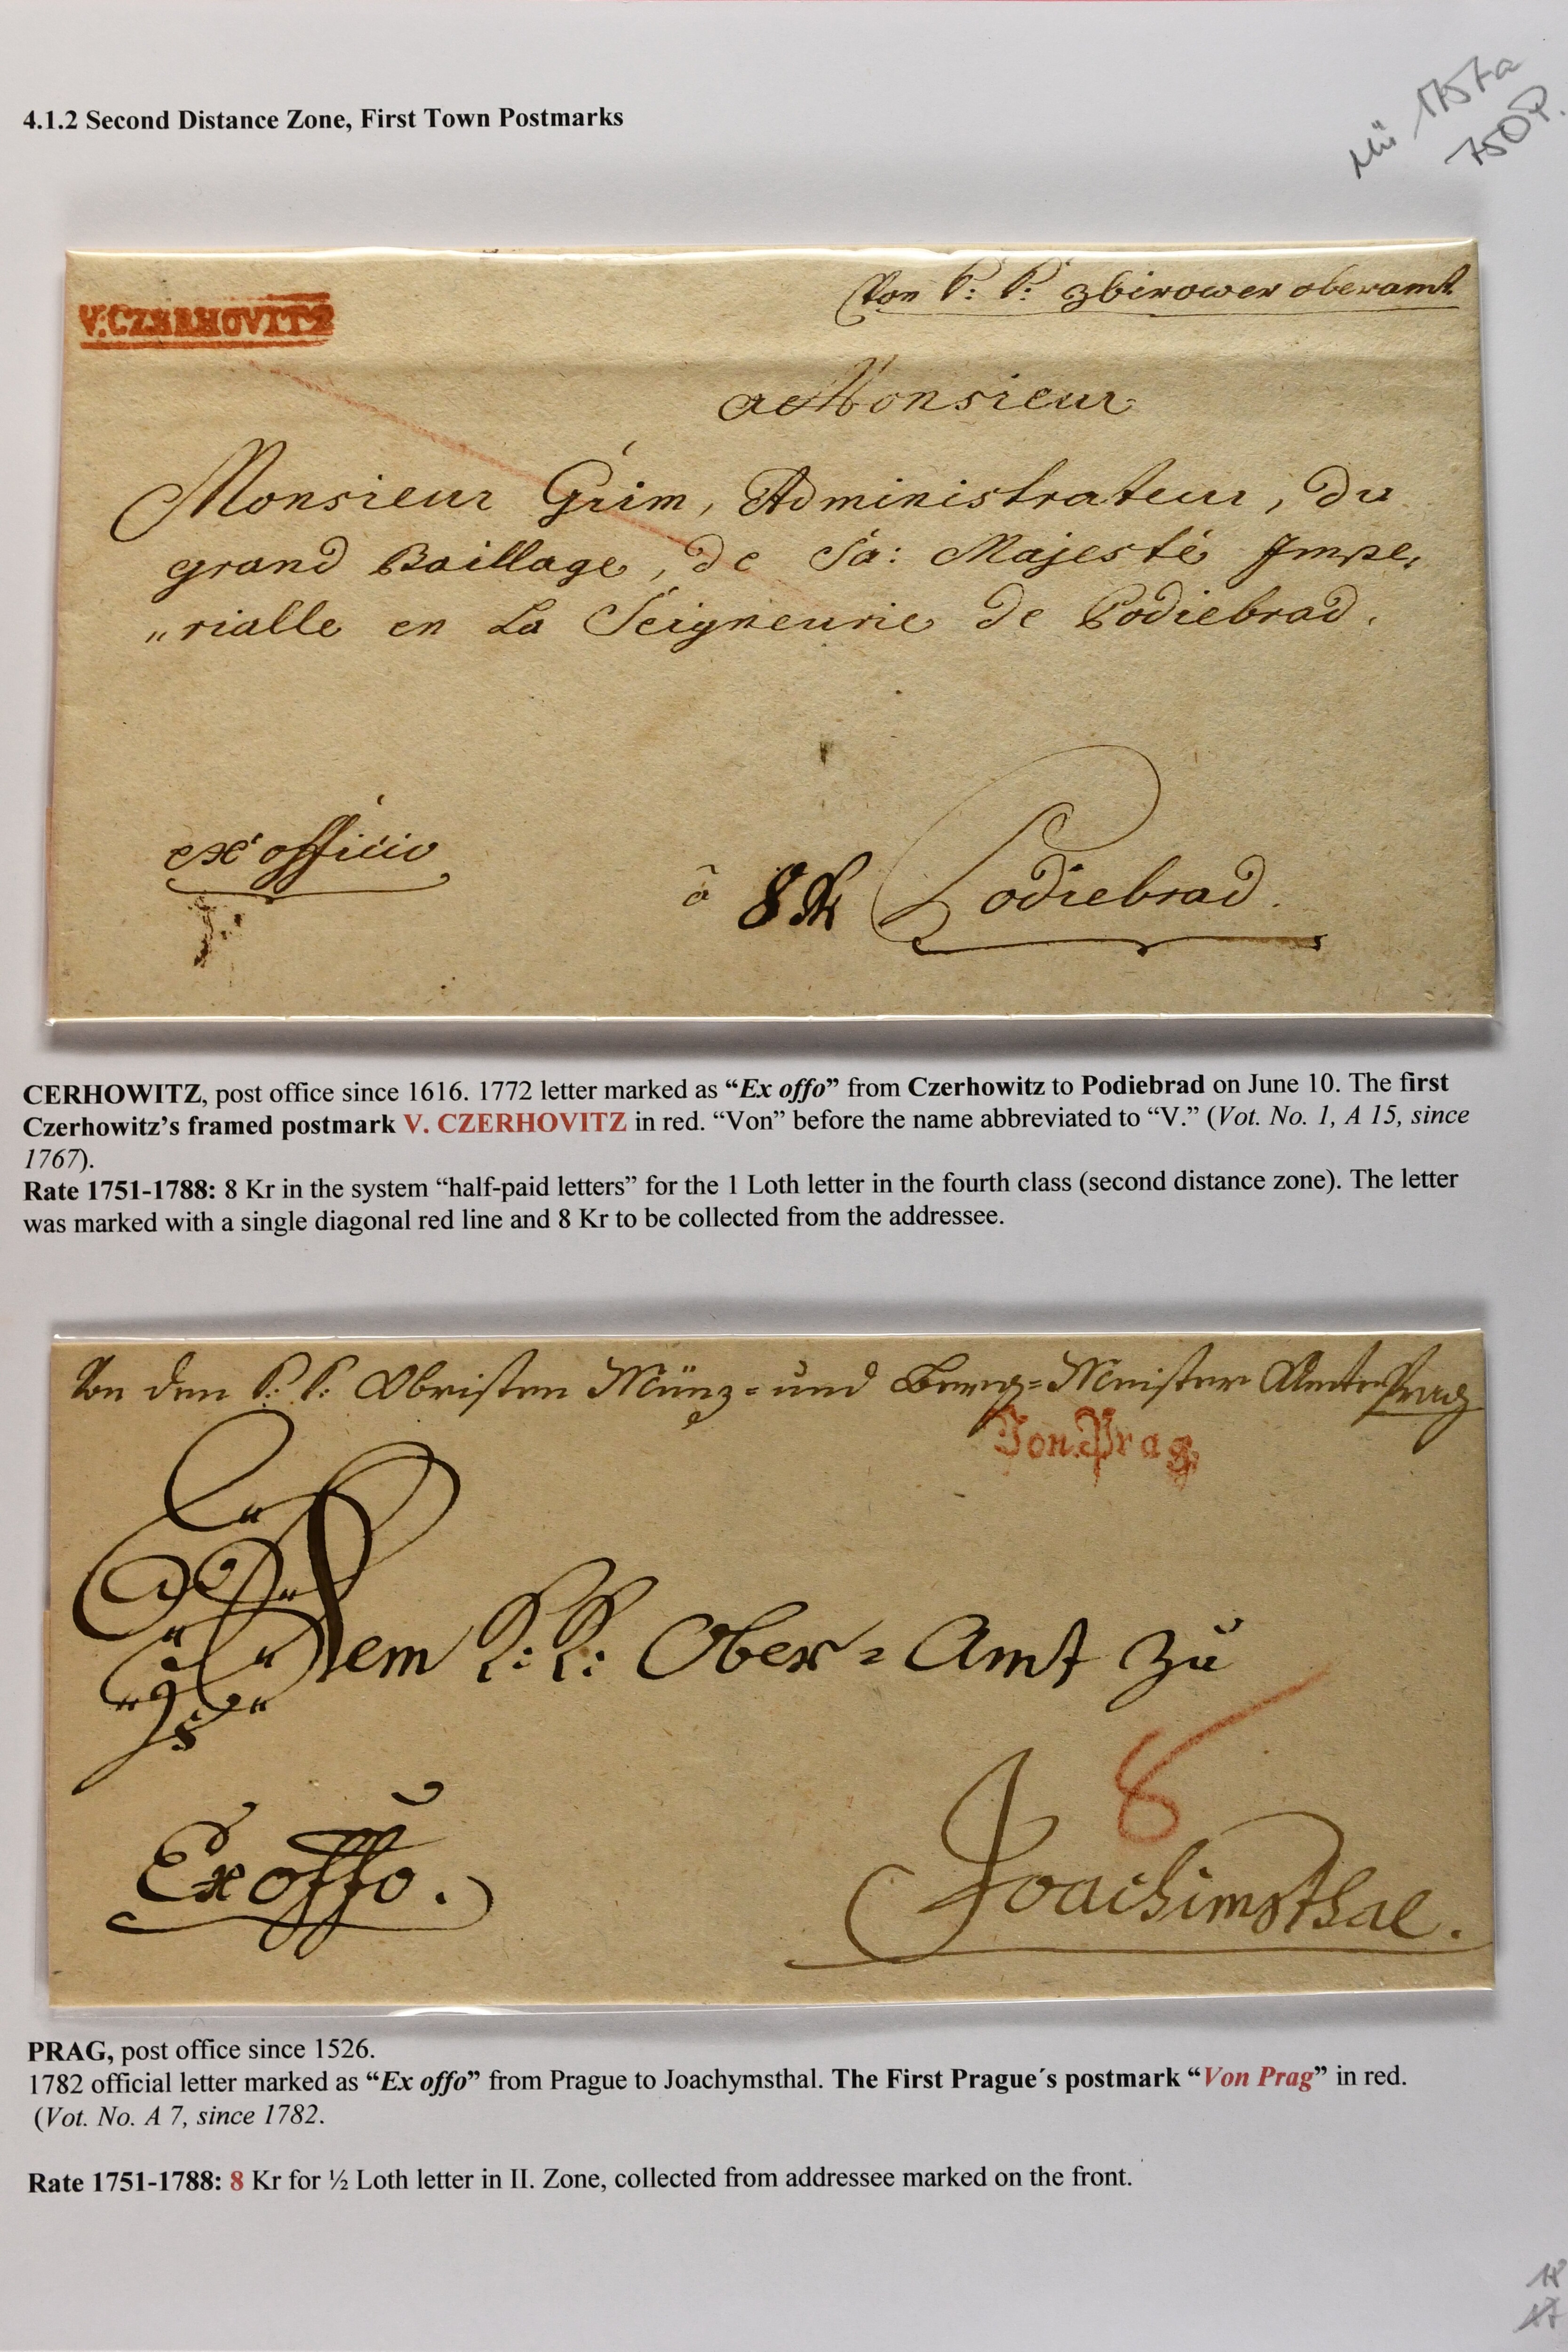 4.1.2 Second Distance Zone, First Town Postmarks
Mü 1757a
750P.
V.CZERHOVITZ
Von k: k: Zbirower oberamt
a Monsieur
Monsieur Grim, Administrateur, du
grand Baillage, de Sa: Majesté Impe,
„rialle en La Seigneurie de Podiebrad.
ex officio
à 8 Podiebrad.
CERHOWITZ, post office since 1616. 1772 letter marked as “Ex offo” from Czerhowitz to Podiebrad on June 10. The first
Czerhowitz’s framed postmark V. CZERHOVITZ in red. “Von” before the name abbreviated to “V.” (Vot. No. 1, A 15, since
1767).
Rate 1751-1788: 8 Kr in the system “half-paid letters” for the 1 Loth letter in the fourth class (second distance zone). The letter
was marked with a single diagonal red line and 8 Kr to be collected from the addressee.
Von dem k: k: Obristen Münz= und Berg=Meister Amte Prag
Von Prag
Dem k: k: Ober=Amt zu
8
Ex offo.
Joachimsthal.
PRAG, post office since 1526.
1782 official letter marked as “Ex offo” from Prague to Joachymsthal. The First Prague´s postmark “Von Prag” in red.
(Vot. No. A 7, since 1782.
Rate 1751-1788: 8 Kr for ½ Loth letter in II. Zone, collected from addressee marked on the front.
18
17